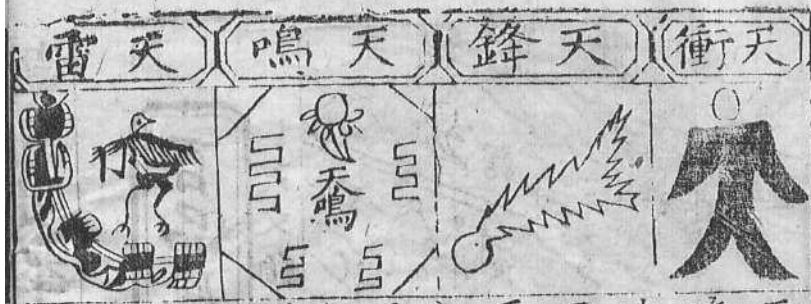 天衝
天鋒
天鳴
天雷
天鳴